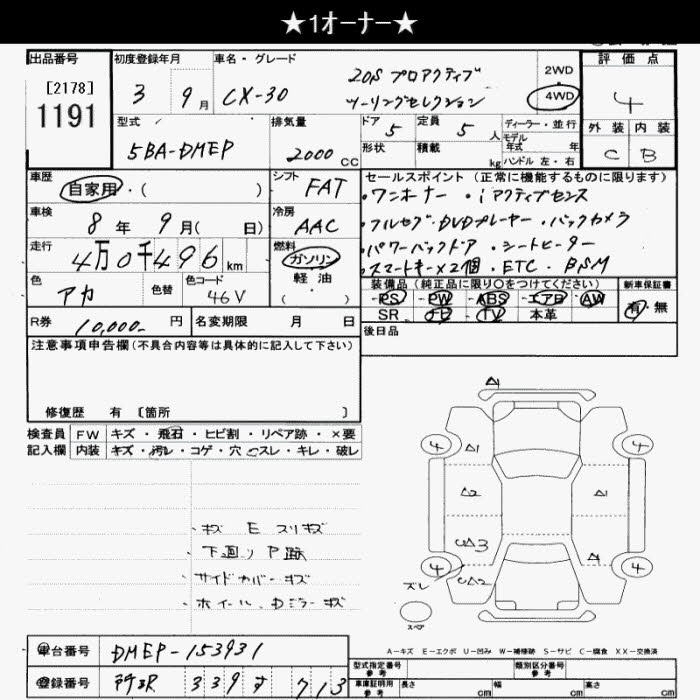 ★1オーナー★
出品番号 初度登録年月 車名・グレード 評価点
[2178] 1191
3 9月 CX-30 20S プロアクティブ ツーリングセレクション 2WD 4WD 4
型式 排気量 ドア 5 定員 5人 ディーラー・並行
モデル年式 年
外装 内装
5BA-DMEP 2000cc 形状 積載 kg ハンドル 左・右 C B
車歴 自家用・( ) シフト FAT
セールスポイント (正常に機能するものに限ります)
・ワンオーナー ・iアクティブセンス
・フルセグ・DVDプレーヤー・バックカメラ
・パワーバックドア・シートヒーター
・スマートキー×2個・ETC・BSM
車検 8年 9月( 日) 冷房 AAC
走行 4万0千496km 燃料 ガソリン 軽油 ( )
色 アカ 色替 色コード 46V
装備品(純正品に限り○をつけてください) 新車保証書
PS PW ABS エアB AW 有・無
SR ナビ TV 本革
R券 10,000-円 名変期限 月 日
後日品
注意事項申告欄(不具合内容等は具体的に記入して下さい)
修復歴 有 〔箇所 〕
検査員記入欄 FW キズ・飛石・ヒビ割・リペア跡・×要
内装 キズ・汚レ・コゲ・穴・スレ・キレ・破レ
・キズ E スリキズ
・下廻り P跡
・サイドカバーキズ
・ホイール、Dミラーキズ
A1
4 A1 4
A2 A1
UA3 A1
4 UA2 4
ズレ
スペア
A-キズ E-エクボ U-凹み W-補修跡 S-サビ C-腐食 XX-交換済
車台番号 DMEP-153931
登録番号 339 す 713
型式指定番号 参考 類別区分番号 参考
車庫証明用 参考 長さ cm 幅 cm 高さ cm